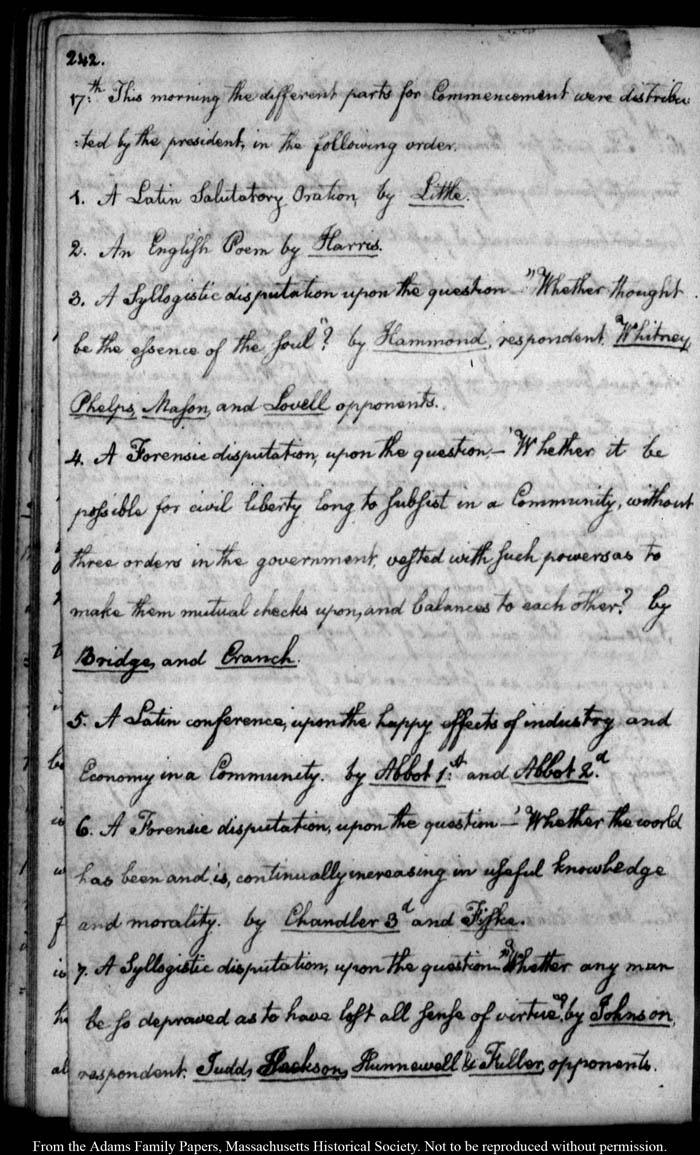 242.
17.th This morning the different parts for Commencement were distribu
:ted by the president, in the following order.
1. A Latin Salutatory Oration, by Little.
2. An English Poem by Harris.
3. A Syllogistic disputation upon the question — "Whether thought
be the essence of the soul"? by Hammond, respondent. Whitney,
Phelps, Mason, and Lovell opponents.
4. A Forensic disputation, upon the question, — "Whether it be
possible for civil liberty long to subsist in a Community, without
three orders in the government, vested with such powers as to
make them mutual checks upon, and balances to each other? by
Bridge, and Cranch.
5. A Latin conference, upon the happy effects of industry and
Economy in a Community. by Abbot 1.st and Abbot 2.d
6. A Forensic disputation, upon the question — "Whether the world
has been and is, continually increasing in useful knowledge
and morality. by Chandler 3d and Fiske.
7. A Syllogistic disputation, upon the question — "Whether any man
be so depraved as to have lost all sense of virtue? by Johnson,
respondent. Judd, Jackson, Hunnewell & Fuller, opponents.
From the Adams Family Papers, Massachusetts Historical Society. Not to be reproduced without permission.